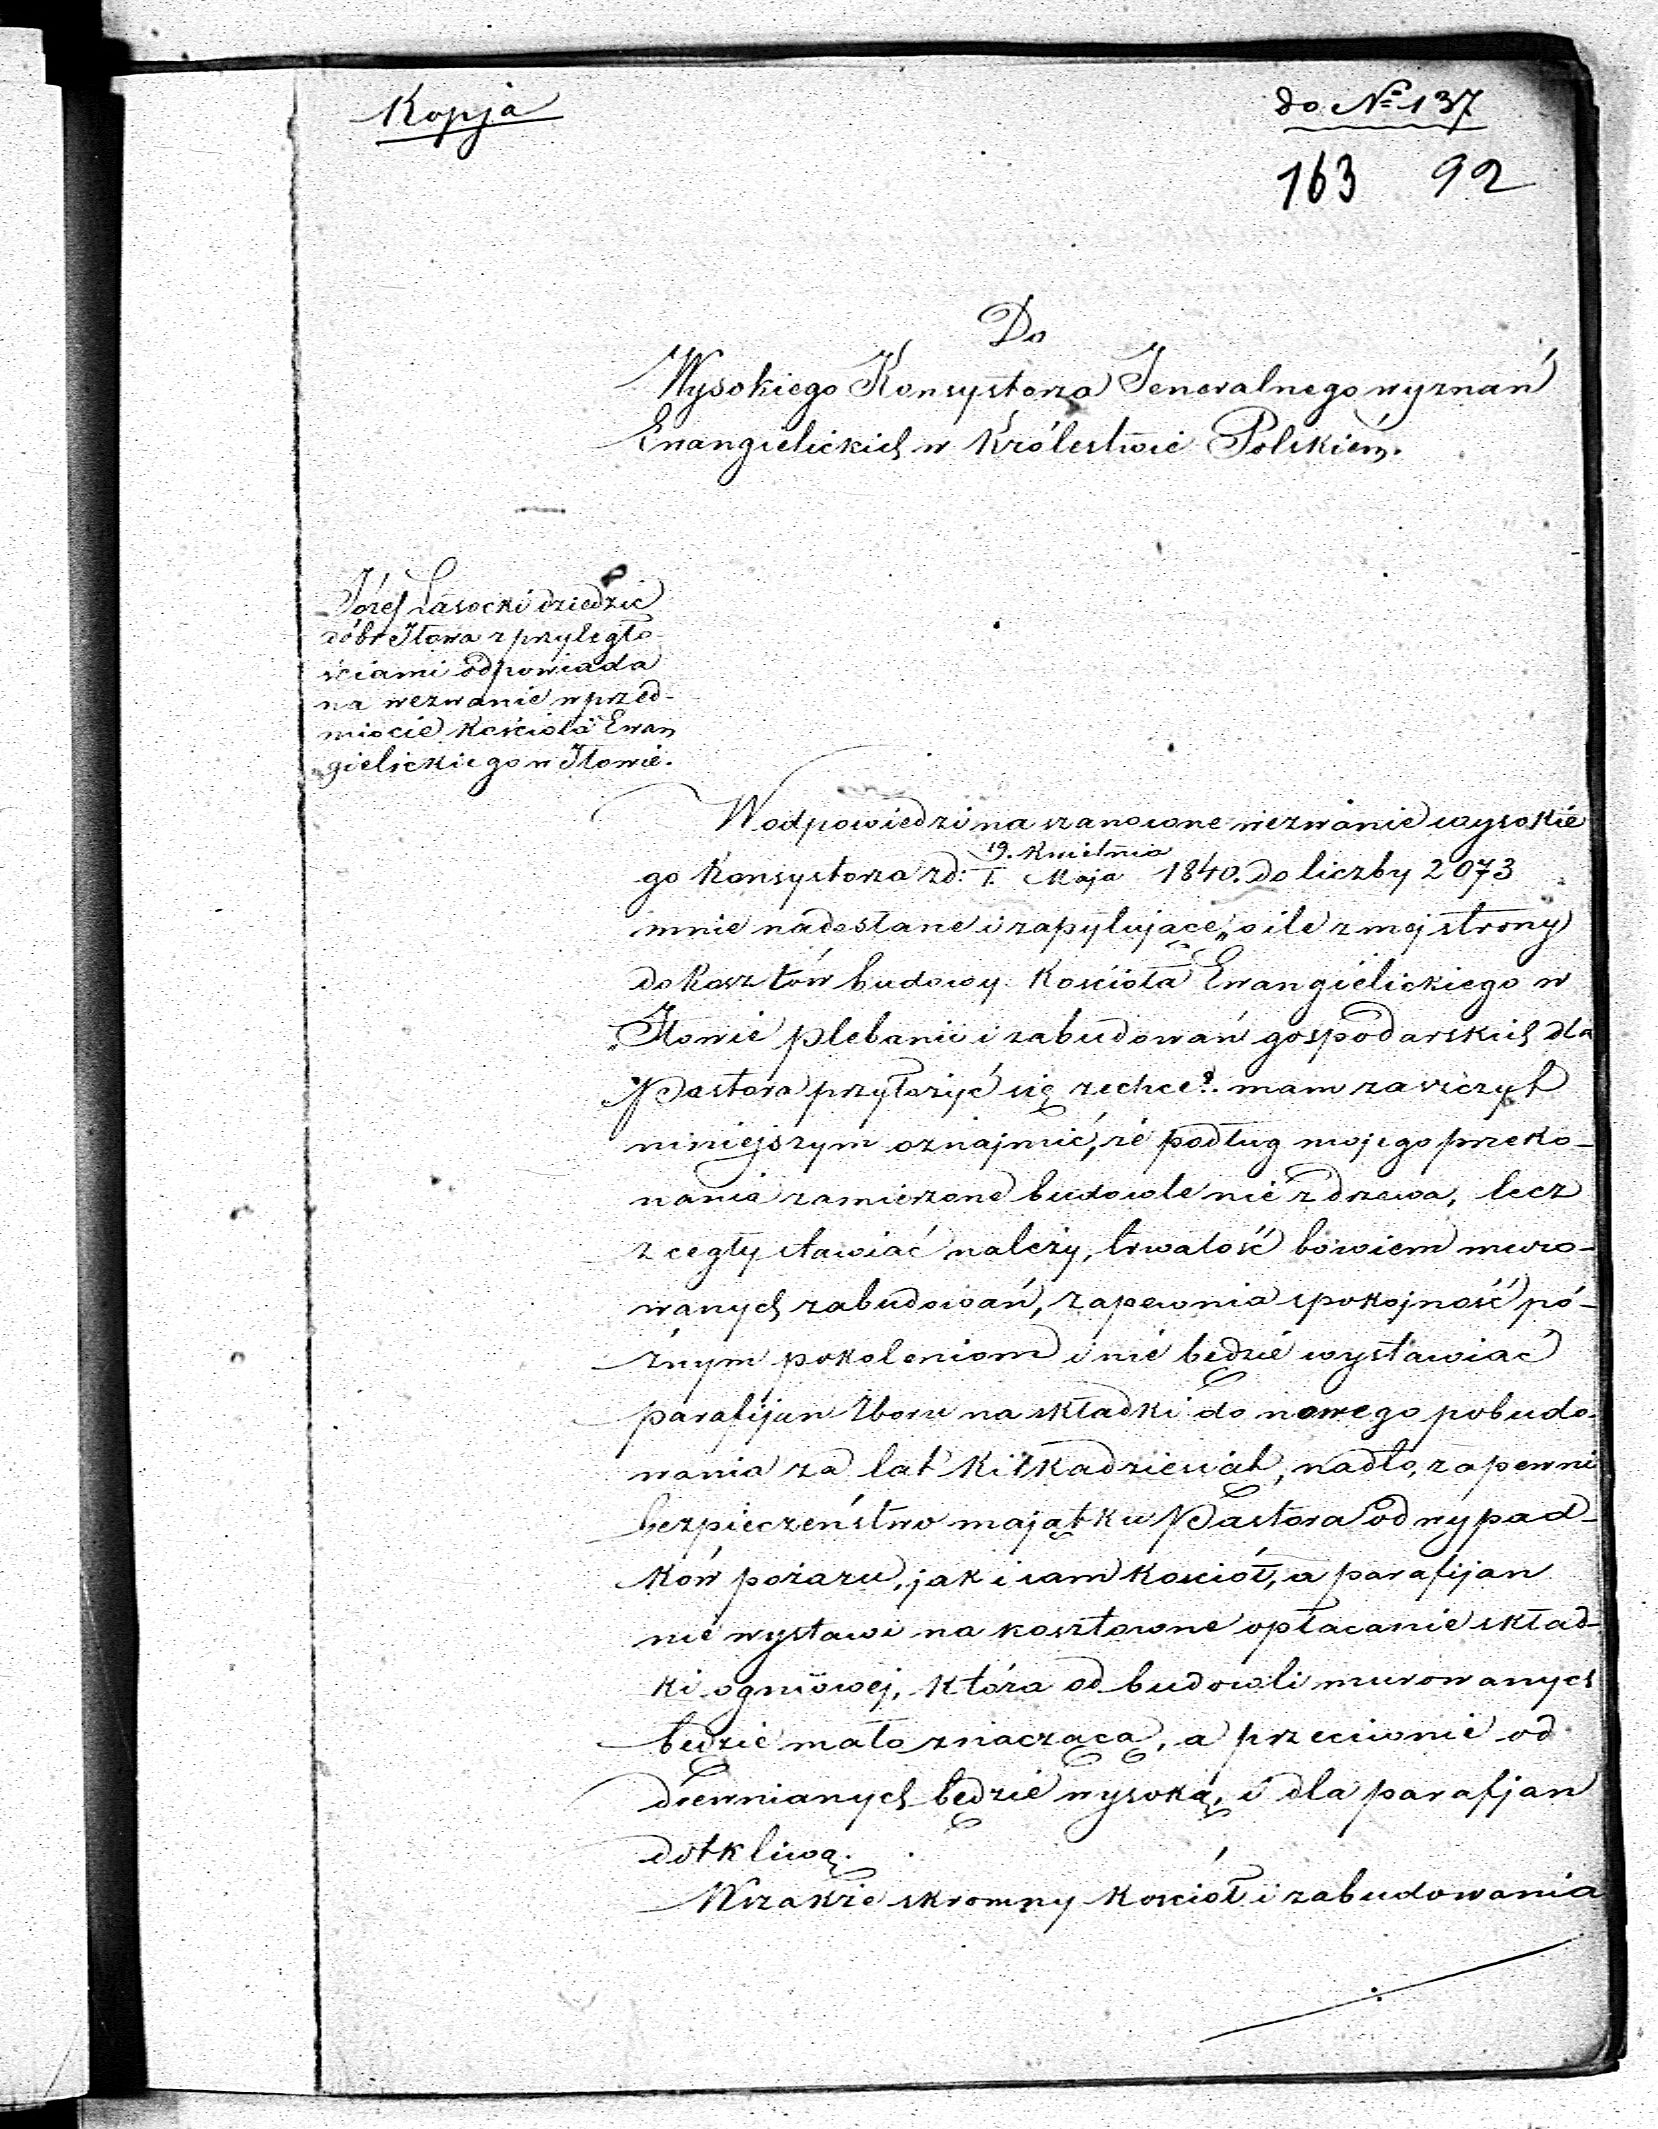 Kopja
do № 137
163 92
Do
Wysokiego Konsystorza Jeneralnego wyznań
Ewangielickich w Królestwie Polskiém.
Józef Lasocki dziedzic
dóbr Iłowa z przyległo-
ściami odpowiada
na wezwanie w przed-
miocie Kościoła Ewan
gielickiego w Iłowie.
W odpowiedzi na szanowne wezwanie wysokie
go Konsystorza z d: 19. Kwietnia / 1. Maja 1840. do liczby 2073
mnie nadesłane i zapytujące „o ile z mej strony
do kosztów budowy Kościoła Ewangielickiego w
„Iłowie plebanii i zabudowań gospodarskich dla
Pastora przyłożyć się zechce? mam zaszczyt
niniejszym oznajmić, że podług mojego przeko-
nania zamierzone budowle nie z drzewa, lecz
z cegły stawiać należy, trwałość bowiem muro-
wanych zabudowań, zapewnia spokojność pó-
źnym pokoleniom i nie będzie wystawiać
parafijan Zboru na składki do nowego pobudo-
wania za lat kilkadziesiąt, nadto, zapewni
bezpieczeństwo majątku Pastora od wypad-
ków pożaru, jak i sam Kościół, a parafijan
nie wystawi na kosztowne opłacanie skład-
ki ogniowej, która od budowli murowanych
będzie mało znaczącą, a przeciwnie od
drewnianych będzie wysoką, i dla parafjan
dotkliwą.
Wszakże skromny Kościół i zabudowania